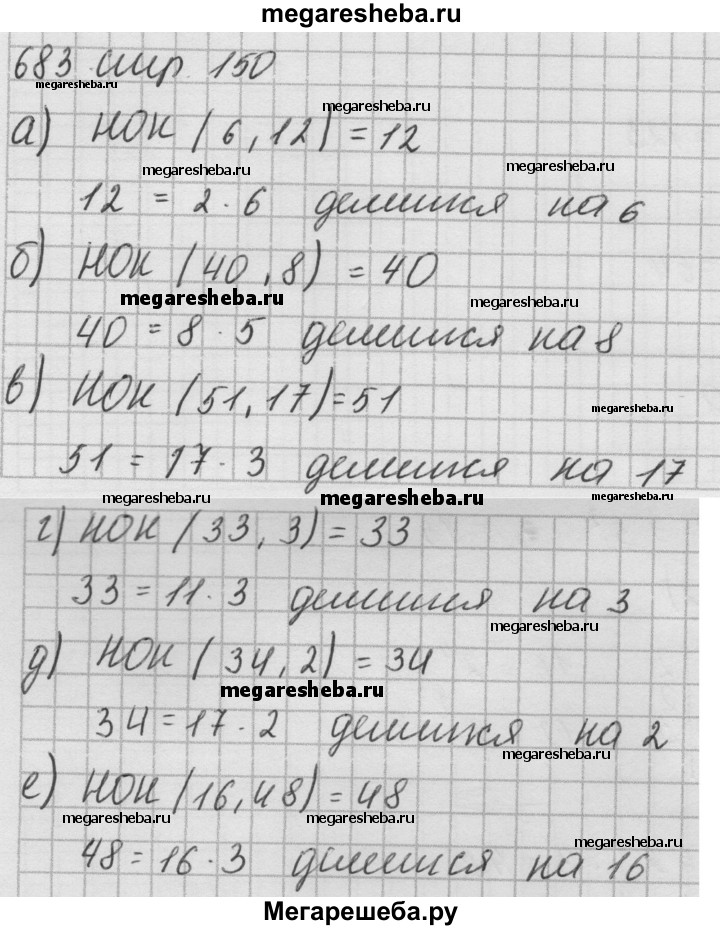 megaresheba.ru
683 стр. 150
megaresheba.ru
megaresheba.ru
а) НОК (6, 12) = 12
megaresheba.ru
megaresheba.ru
12 = 2 · 6 делится на 6
б) НОК (40, 8) = 40
megaresheba.ru
megaresheba.ru
40 = 8 · 5 делится на 8
в) НОК (51, 17) = 51
megaresheba.ru
51 = 17 · 3 делится на 17
megaresheba.ru
megaresheba.ru
megaresheba.ru
г) НОК (33, 3) = 33
33 = 11 · 3 делится на 3
megaresheba.ru
д) НОК (34, 2) = 34
megaresheba.ru
34 = 17 · 2 делится на 2
megaresheba.ru
е) НОК (16, 48) = 48
megaresheba.ru
megaresheba.ru
megaresheba.ru
48 = 16 · 3 делится на 16
Мегарешеба.ру